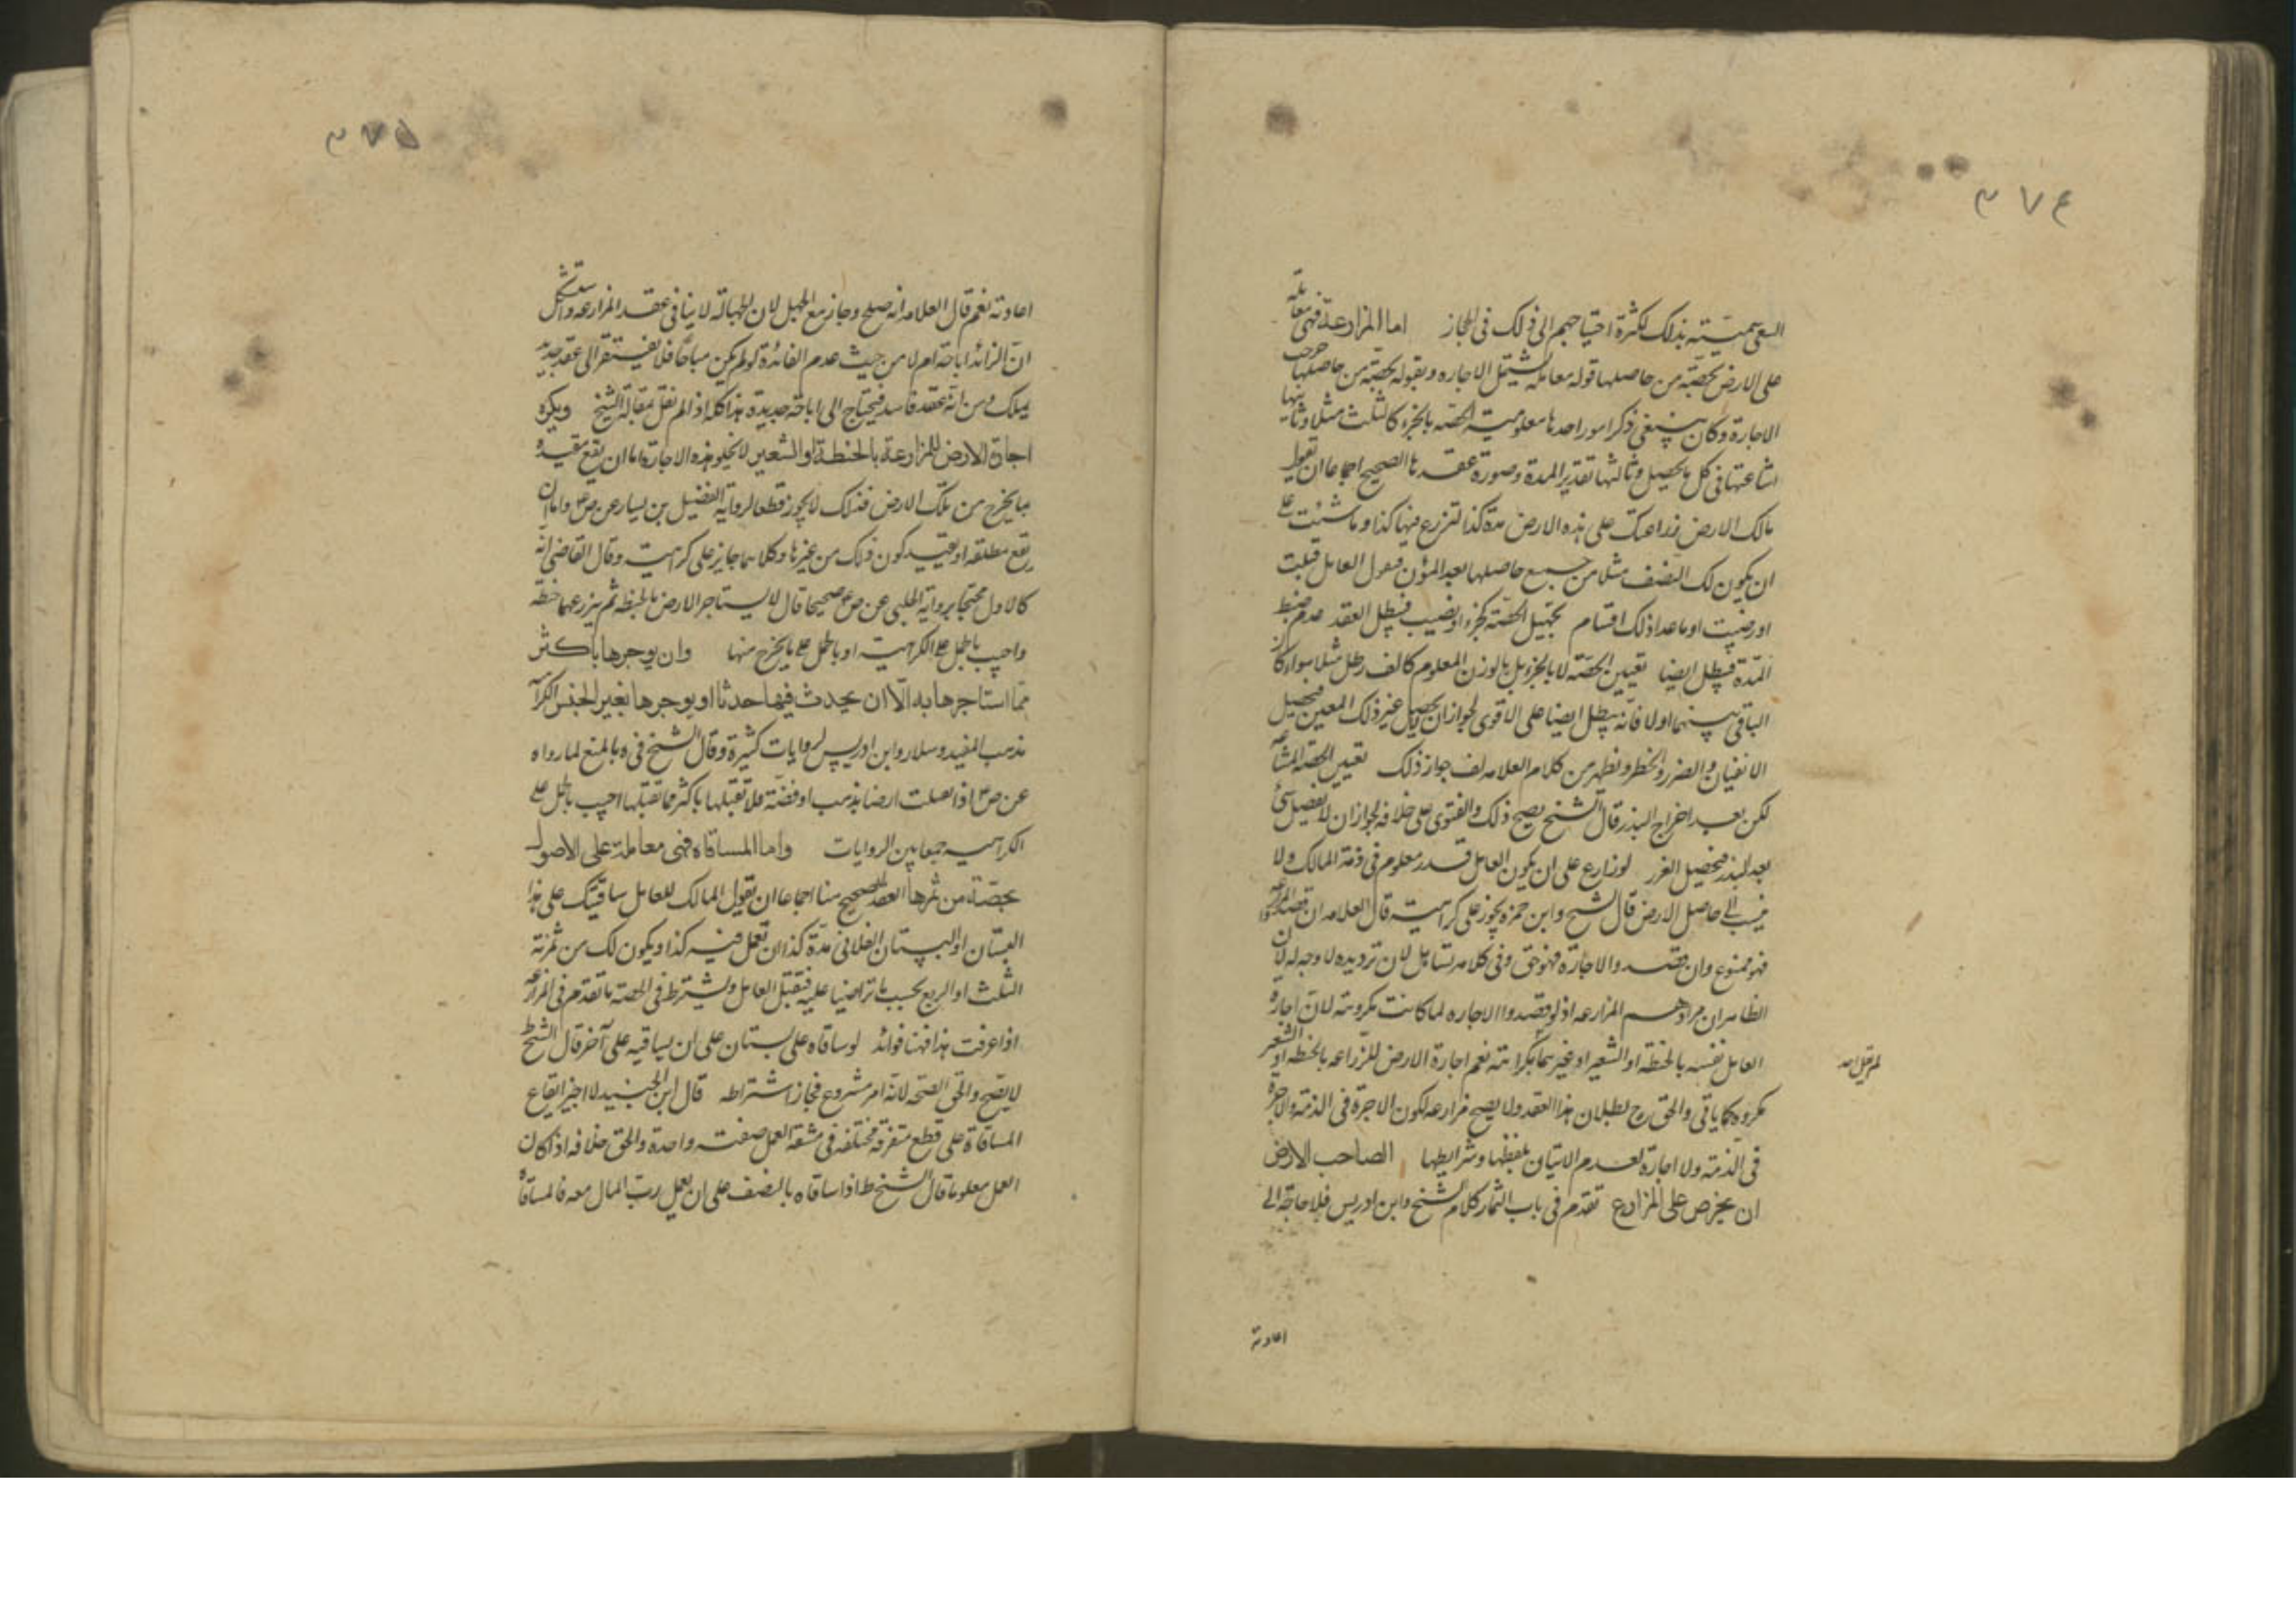 ٣٧٤
السعى سميته بذلك لكثرة احتياجهم الى ذلك فى الحجاز اما المزارعة فهى معاملة
على الارض بحصّة من حاصلها قوله معاملة يشتمل الاجاره وبقوله بحصّة من حاصلها خرجت
الاجارة وكان ينبغى ذكر امور احدها معلومية الحصّة بالجزء كالثلث مثلا وثانيها
اشاعتها فى كل ما يحصل وثالثها تقدير المدة وصورة عقدها الصحيح اجماعا ان يقول
مالك الارض زارعتك على هذه الارض مدة كذا لتزرع فيها كذا وما شئت على
ان يكون لك النصف مثلا من جميع حاصلها بعد المؤن فيقول العامل قبلت
او رضيت اوما عدا ذلك اقسام تجهيل الحصّة كجزء او نصيب فيبطل العقد عدم ضبط
المدّة فيبطل ايضا تعيين الحصّة لا بالجزء بل بالوزن المعلوم كالف رطل مثلا سواء كان
الباقى بينهما اولا فانّه يبطل ايضا على الاقوى لجواز ان لا يحصل غير ذلك المعين فيحصل
والضرر والخطر ويظهر من كلام العلامه لف جواز ذلك تعيين الحصّة المشاعه
لكن بعد اخراج البذر قال الشيخ يصح ذلك والفتوى على خلافه لجواز ان لا يفضل شئ
بعد البذر فيحصل الغرر لو زارع على ان يكون للعامل قدر معلوم فى ذمة المالك ولا
ينسب الى حاصل الارض قال الشيخ وابن حمزه يجوز على كراهية قال العلامه ان قصد المزارعه
فهو ممنوع وان قصد والاجارة فهو حق وفى كلامه تساهل لان ترديده لا وجه له لان
الظاهر ان مرادهم المزارعه اذ لو قصدوا الاجاره لما كانت مكروهة لان اجارة
العامل نفسه بالحنطة او الشعير او غيرهما بكراهته نعم اجارة الارض للزراعه بالحنطه او الشعير
لم يقل احد
مكروه كما ياتى والحق ح بطلان هذا العقد ولا يصح مزارعه لكون الاجرة فى الذمة والاجرة
فى الذمة ولا اجارة لعدم الاتيان بلفظها وشرايطها الصاحب الارض
ان يخرص على المزارع تقدم فى باب الثمار كلام الشيخ وابن ادريس فلا حاجة الى
اعادته
٣٧٥
اعادته نعم قال العلامه انه صلح وجاز مع الجهل لان الجهالة لا ينافى عقد المزارعه واستشكل
انّ الزائد اباحة ام لا من حيث عدم الفائدة لو لم يكن مباحًا فلا يفتقر الى عقد جديد
يملك ومن انّه عقد فاسد فيحتاج الى اباحة جديدة هذا كله اذا لم نقل بمقالة الشيخ ويكره
اجارة الارض للمزارعة بالحنطة او الشعير لا يخلو هذه الاجارة اما ان يقع مقيده
بما يخرج من تلك الارض فذلك لا يجوز قطعا لرواية الفضيل بن يسار عن ص ع واما ان
يقع مطلقة او بقيد كون ذلك من غيرها وكلاهما جايز على كراهية وقال القاضى انّه
كالاول محتجا برواية الحلبى عن ص ع صحيحا قال لا يستاجر الارض بالحنطه ثم يزرعها حنطة
واجيب بالحمل على الكراهية او بالحمل على ما يخرج منها وان يوجرها باكثر
ممّا استاجرها به الّا ان يحدث فيها حدثا او يوجرها بغير الجنس الكراهة
مذهب المفيد وسلار وابن ادريس لروايات كثيرة وقال الشيخ فى ه بالمنع لما رواه
عن ص ع اذا تقبلت ارضا بذهب او فضّة فلا تقبلها باكثر مما تقبلتها اجيب بالحمل على
الكراهية جمعا بين الروايات واما المساقاة فهى معاملة على الاصول
بحصّة من ثمرها العقد الصحيح منا اجماعا ان يقول المالك للعامل ساقيتك على هذا
البستان او البستان الفلانى مدّة كذا ان تعمل فيه كذا ويكون لك من ثمرته
الثلث او الربع بحسب ما تراضيا عليه فيقبل العامل ويشترط فى الحصّة ما تقدّم فى المزارعه
اذا عرفت هذا فهنا فوائد لو ساقاه على بستان على ان يساقيه على آخر قال الشيخ ط
لا يصح والحق الصّحة لانّه امر مشروع فجاز اشتراطه قال ابن الجنيد لا اجيز ايقاع
المساقاة على قطع متفرقة مختلفة فى مشقة العمل صفقة واحدة والحق خلافه اذا كان
العمل معلوما قال الشيخ ط اذا ساقاه بالنصف على ان يعمل ربّ المال معه فالمساقاة